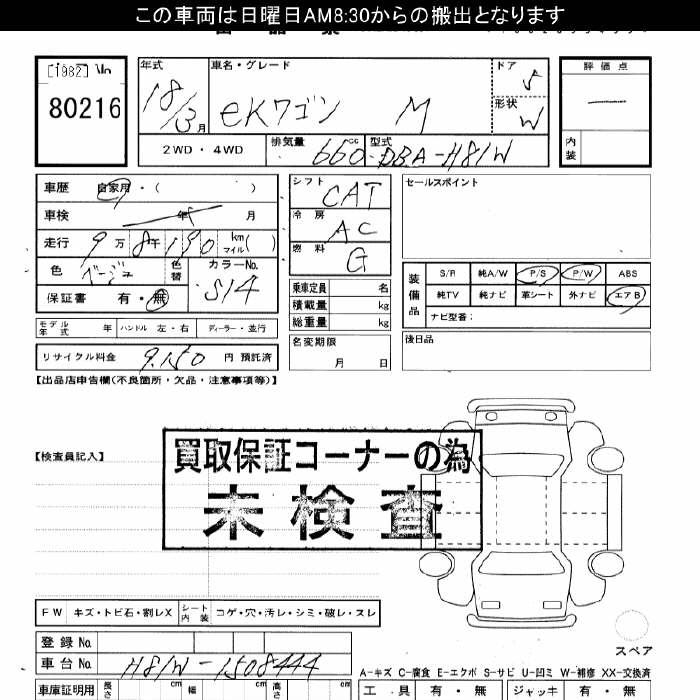 この車両は日曜日AM8:30からの搬出となります
[1982] No
80216
年式 18/3月
車名・グレード ekワゴン M
ドア 5
形状 W
2WD・4WD
排気量 660cc
型式 DBA-H81W
評価点
内装
車歴 自家用・( )
車検 年 月
走行 9万8千190 km マイル( )
色 ベージュ 色替 カラーNo. S14
保証書 有・無
モデル年式 年 ハンドル 左・右 ディーラー・並行
リサイクル料金 9.150 円 預託済
シフト CAT
冷房 AC
燃料 G
乗車定員 名
積載量 kg
総重量 kg
名変期限
月 日
セールスポイント
装備品
S/R 純A/W P/S P/W ABS
純TV 純ナビ 革シート 外ナビ エアB
ナビ型番:
後日品
【出品店申告欄(不良箇所・欠品・注意事項等)】
【検査員記入】
買取保証コーナーの為
未検査
FW キズ・トビ石・割レX シート内装 コゲ・穴・汚レ・シミ・破レ・スレ
登録No
車台No H81W-1508444
車庫証明用 長さ cm 幅 cm 高さ cm
スペア
A-キズ C-腐食 E-エクボ S-サビ U-凹ミ W-補修 XX-交換済
工具 有・無 ジャッキ 有・無